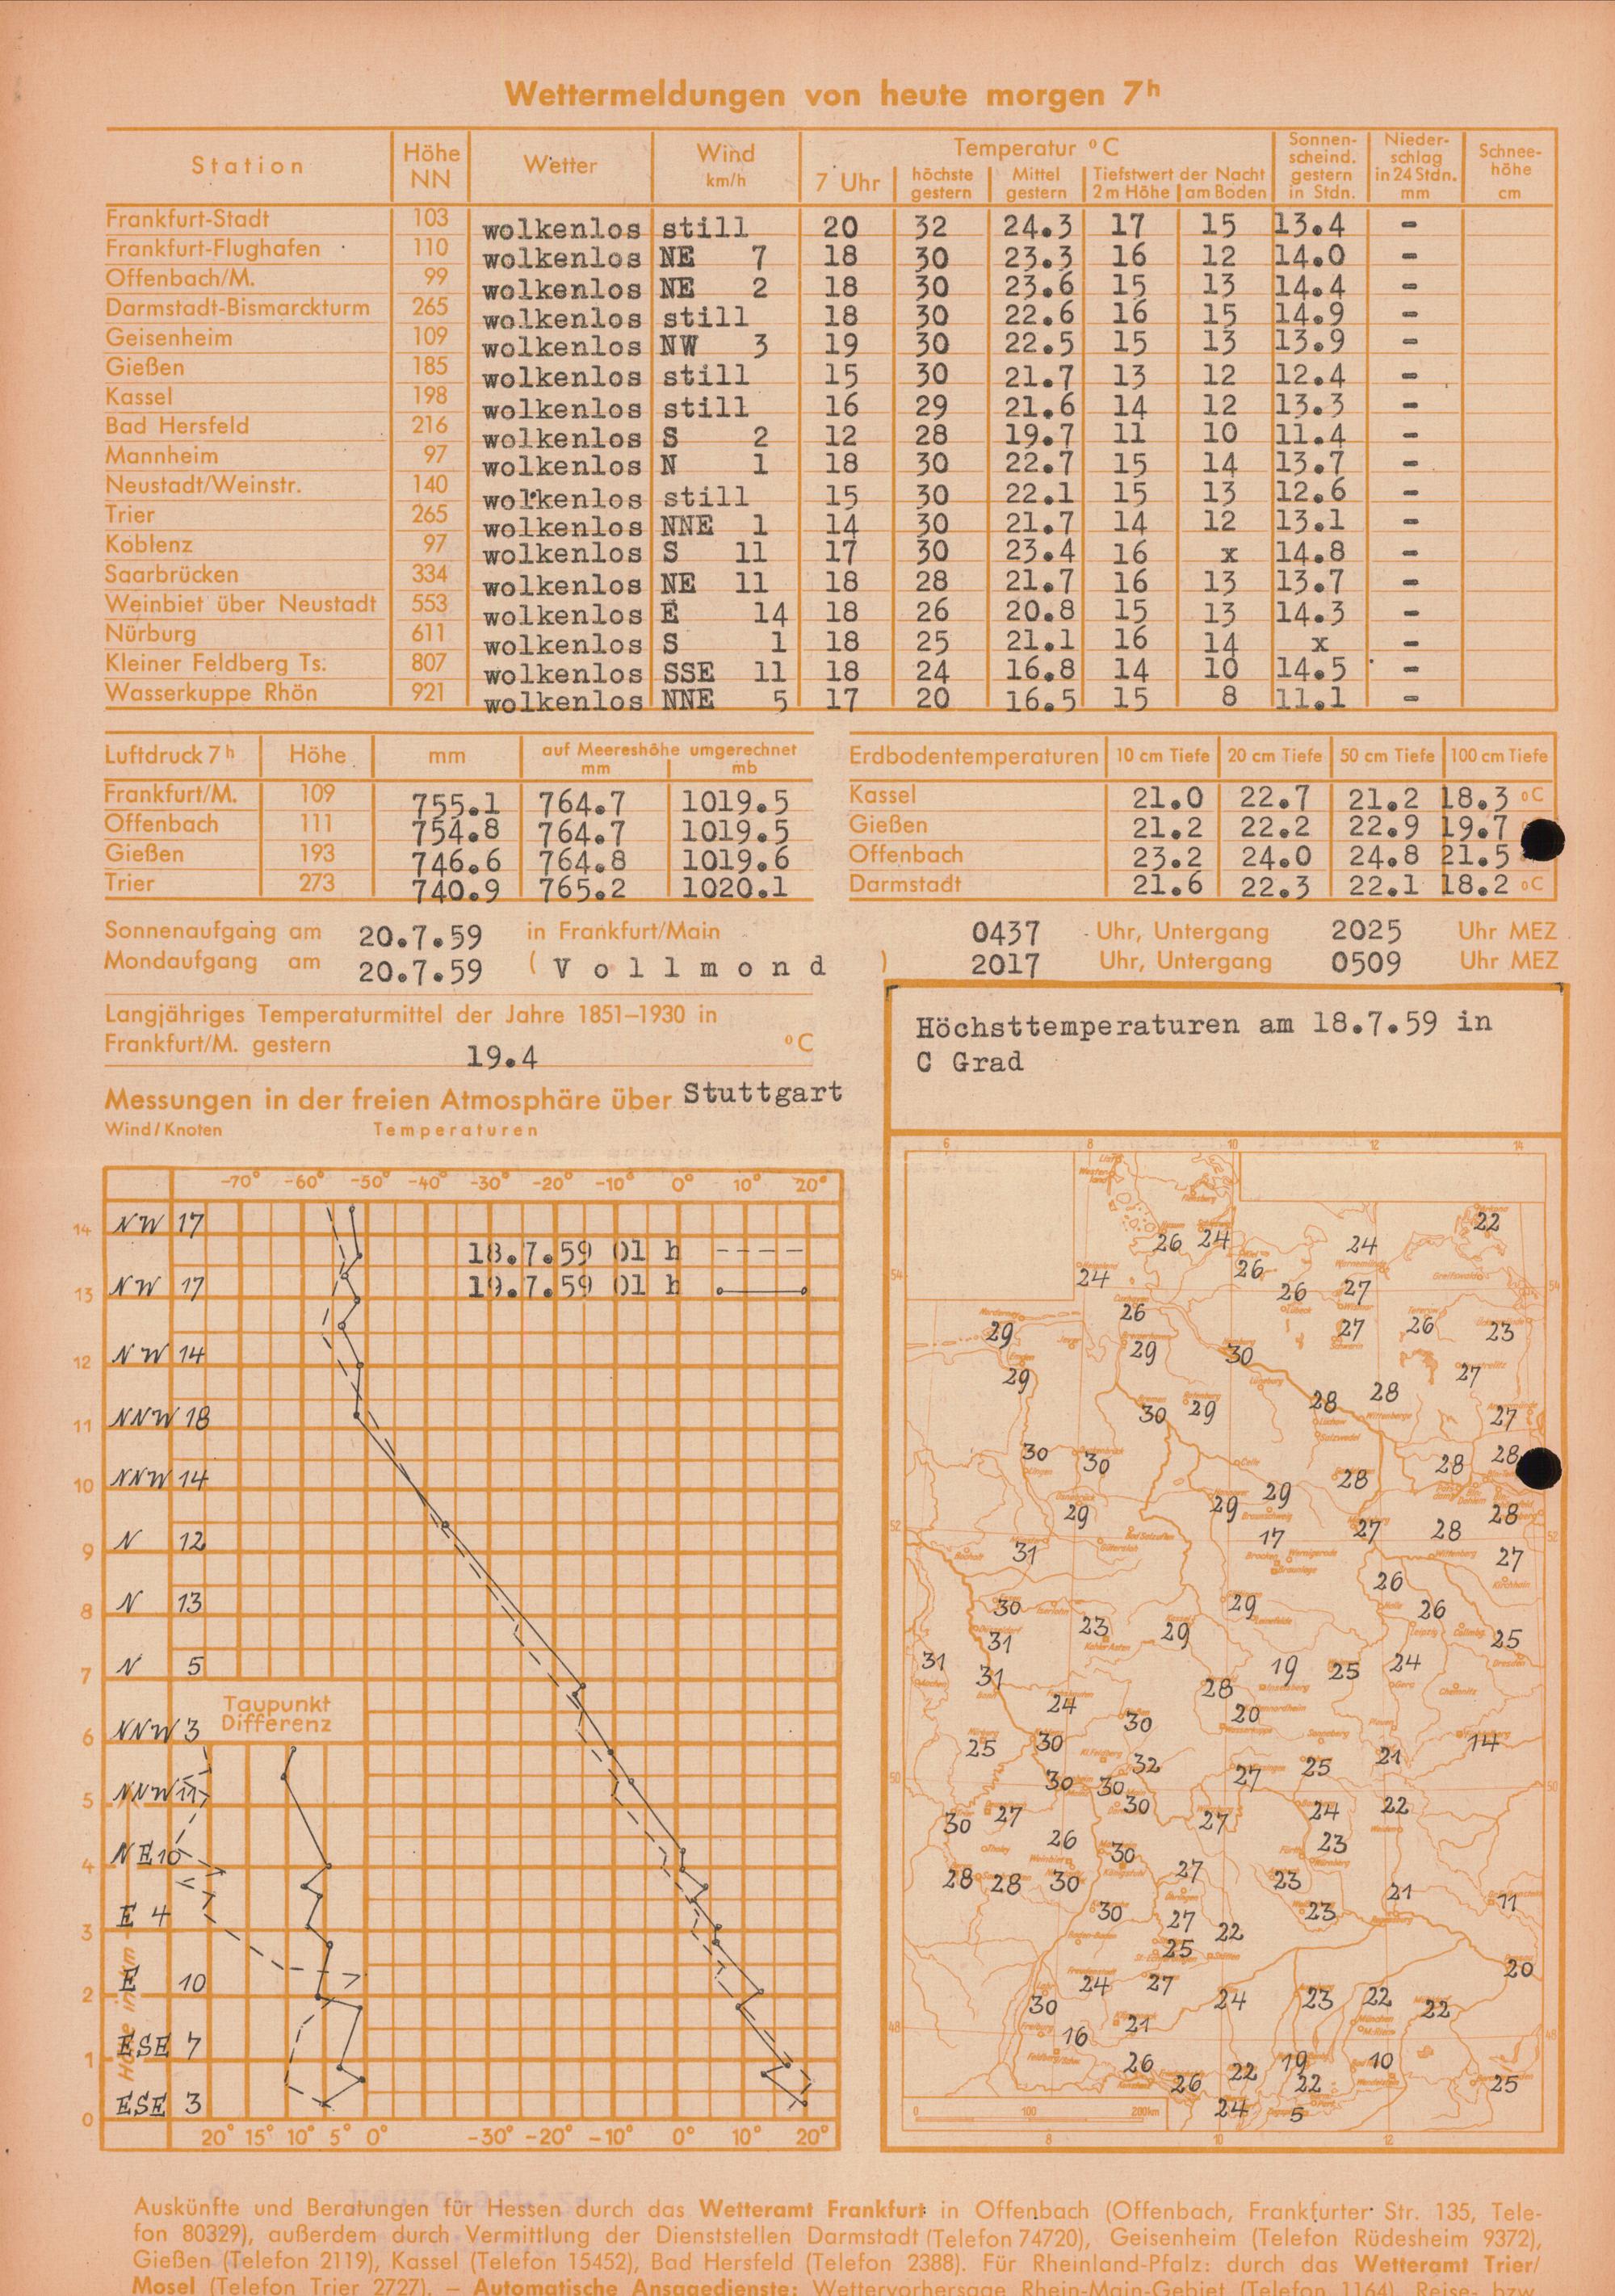 Wettermeldungen von heute morgen 7h
Station Höhe NN Wetter Wind km/h Temperatur °C 7 Uhr höchste gestern Mittel gestern Tiefstwert der Nacht 2 m Höhe am Boden Sonnenscheind. gestern in Stdn. Niederschlag in 24 Stdn. mm Schneehöhe cm
Frankfurt-Stadt 103 wolkenlos still 20 32 24.3 17 15 13.4 -
Frankfurt-Flughafen 110 wolkenlos NE 7 18 30 23.3 16 12 14.0 -
Offenbach/M. 99 wolkenlos NE 2 18 30 23.6 15 13 14.4 -
Darmstadt-Bismarckturm 265 wolkenlos still 18 30 22.6 16 15 14.9 -
Geisenheim 109 wolkenlos NW 3 19 30 22.5 15 13 13.9 -
Gießen 185 wolkenlos still 15 30 21.7 13 12 12.4 -
Kassel 198 wolkenlos still 16 29 21.6 14 12 13.3 -
Bad Hersfeld 216 wolkenlos S 2 12 28 19.7 11 10 11.4 -
Mannheim 97 wolkenlos N 1 18 30 22.7 15 14 13.7 -
Neustadt/Weinstr. 140 wolkenlos still 15 30 22.1 15 13 12.6 -
Trier 265 wolkenlos NNE 1 14 30 21.7 14 12 13.1 -
Koblenz 97 wolkenlos S 11 17 30 23.4 16 x 14.8 -
Saarbrücken 334 wolkenlos NE 11 18 28 21.7 16 13 13.7 -
Weinbiet über Neustadt 553 wolkenlos E 14 18 26 20.8 15 13 14.3 -
Nürburg 611 wolkenlos S 1 18 25 21.1 16 14 x -
Kleiner Feldberg Ts. 807 wolkenlos SSE 11 18 24 16.8 14 10 14.5 -
Wasserkuppe Rhön 921 wolkenlos NNE 5 17 20 16.5 15 8 11.1 -
Luftdruck 7h Höhe mm auf Meereshöhe umgerechnet mm mb
Frankfurt/M. 109 755.1 764.7 1019.5
Offenbach 111 754.8 764.7 1019.5
Gießen 193 746.6 764.8 1019.6
Trier 273 740.9 765.2 1020.1
Erdbodentemperaturen 10 cm Tiefe 20 cm Tiefe 50 cm Tiefe 100 cm Tiefe
Kassel 21.0 22.7 21.2 18.3 °C
Gießen 21.2 22.2 22.9 19.7
Offenbach 23.2 24.0 24.8 21.5
Darmstadt 21.6 22.3 22.1 18.2 °C
Sonnenaufgang am 20.7.59 in Frankfurt/Main 0437 Uhr, Untergang 2025 Uhr MEZ
Mondaufgang am 20.7.59 (Vollmond) 2017 Uhr, Untergang 0509 Uhr MEZ
Langjähriges Temperaturmittel der Jahre 1851–1930 in
Frankfurt/M. gestern 19.4 °C
Messungen in der freien Atmosphäre über Stuttgart
Wind/Knoten Temperaturen
-70° -60° -50° -40° -30° -20° -10° 0° 10° 20°
14 NW 17
18.7.59 01 h ----
19.7.59 01 h
13 NW 17
12 NW 14
11 NNW 18
10 NNW 14
9 N 12
8 N 13
7 N 5
Taupunkt
Differenz
6 NNW 3
5 NNW 11
4 NE 10
3 E 4
2 E 10
1 ESE 7
0 ESE 3
Höhe in km
20° 15° 10° 5° 0° -30° -20° -10° 0° 10° 20°
Höchsttemperaturen am 18.7.59 in
C Grad
6 8 10 12 14
22
26 24 24
54 24 26 54
26 27
26
29 27 26 23
29 30
29 27
28 28
30 29 27
30 30 28 28 28
29 29
29 28
52 17 27 28 52
31 27
26
30 29 26
23 29
31 25
31 19 25 24
31 28
24 20
30
25 30 14
32 21
25
50 30 30 27 50
30
30 27 27 24 22
26 30 23
27
28 28 30 23 21 11
30 27 22 23
25
24 27 20
30 24 23 22 22
48 16 21 48
26 22 19 10
26 22 25
24 5
0 100 200km
8 10 12
Auskünfte und Beratungen für Hessen durch das Wetteramt Frankfurt in Offenbach (Offenbach, Frankfurter Str. 135, Tele-
fon 80329), außerdem durch Vermittlung der Dienststellen Darmstadt (Telefon 74720), Geisenheim (Telefon Rüdesheim 9372),
Gießen (Telefon 2119), Kassel (Telefon 15452), Bad Hersfeld (Telefon 2388). Für Rheinland-Pfalz: durch das Wetteramt Trier/
Mosel (Telefon Trier 2727). — Automatische Ansagedienste: Wettervorhersage Rhein-Main-Gebiet (Telefon 1164), Reise- bzw.